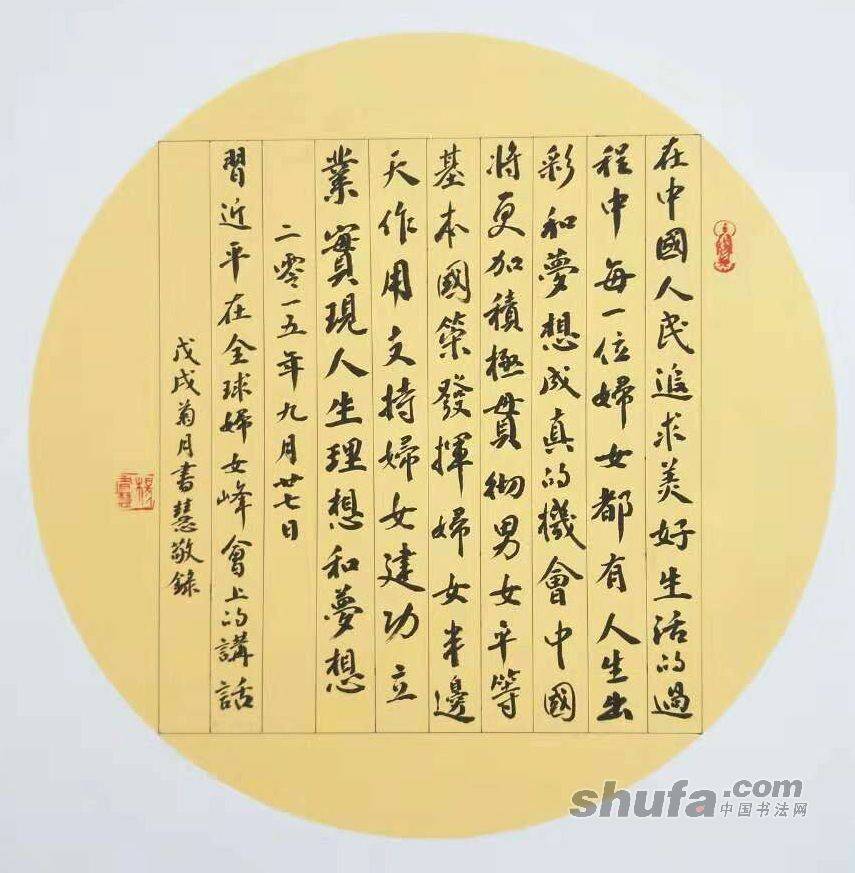 在中國人民追求美好生活的過
程中每一位婦女都有人生出
彩和夢想成真的機會中國
將更加積極貫彻男女平等
基本國策發揮婦女半邊
天作用支持婦女建功立
業實現人生理想和夢想
二零一五年九月廿七日
習近平在全球婦女峰會上的講話
戊戌菊月書慧敬錄
shufa.com
中国书法网